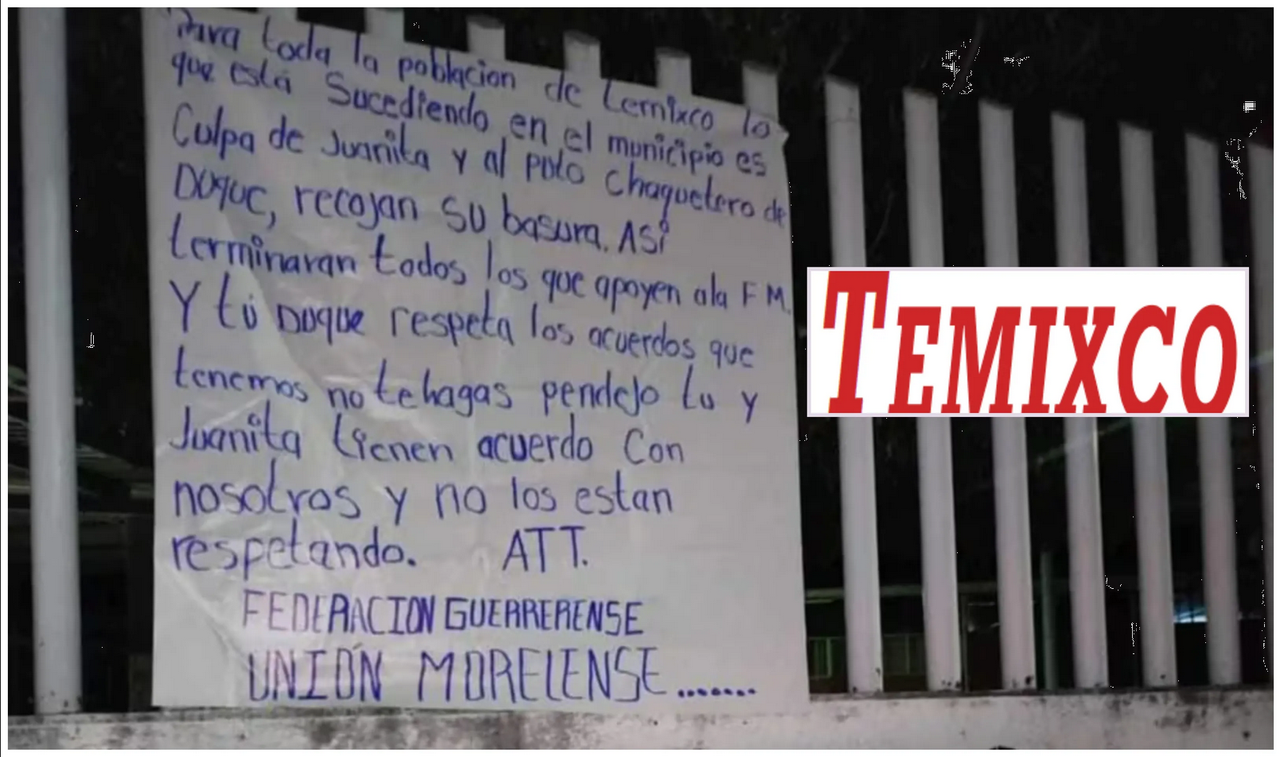 Para toda la poblacion de Temixco lo
que está Sucediendo en el municipio es
Culpa de Juanita y al polo chaquetero de
Duque, recojan su basura. Así
terminaran todos los que apoyen ala F M.
Y tú Duque respeta los acuerdos que
tenemos no tehagas pendejo tu y
Juanita tienen acuerdo Con
nosotros y no los estan
respetando. ATT.
FEDERACION GUERRERENSE
UNIÓN MORELENSE.......
TEMIXCO